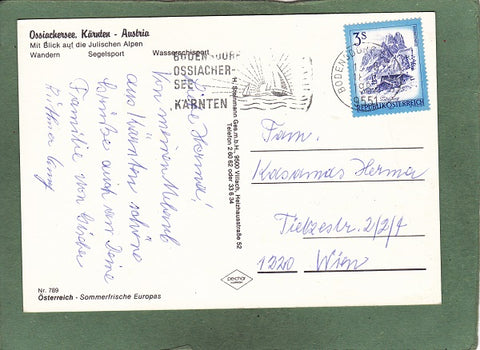 Ossiachersee. Kärnten - Austria
Mit Blick auf die Julischen Alpen
Wandern Segelsport Wasserschisport
BODENSDORF
OSSIACHER-
SEE
KÄRNTEN
3s
REPUBLIK ÖSTERREICH
9551
Liebe Herma!
Von meinem Urlaub
aus Kärnten schöne
Grüße auch an Deine
Familie von Deiner
Ges.m.b.H., 9500 Villach, Heizhausstraße 52
Telefon 2 60 62 oder 33 6 34
Fam.
Kasamas Herma
Tietzestr. 2/2/7
1220 Wien
Nr. 789
Österreich - Sommerfrische Europas